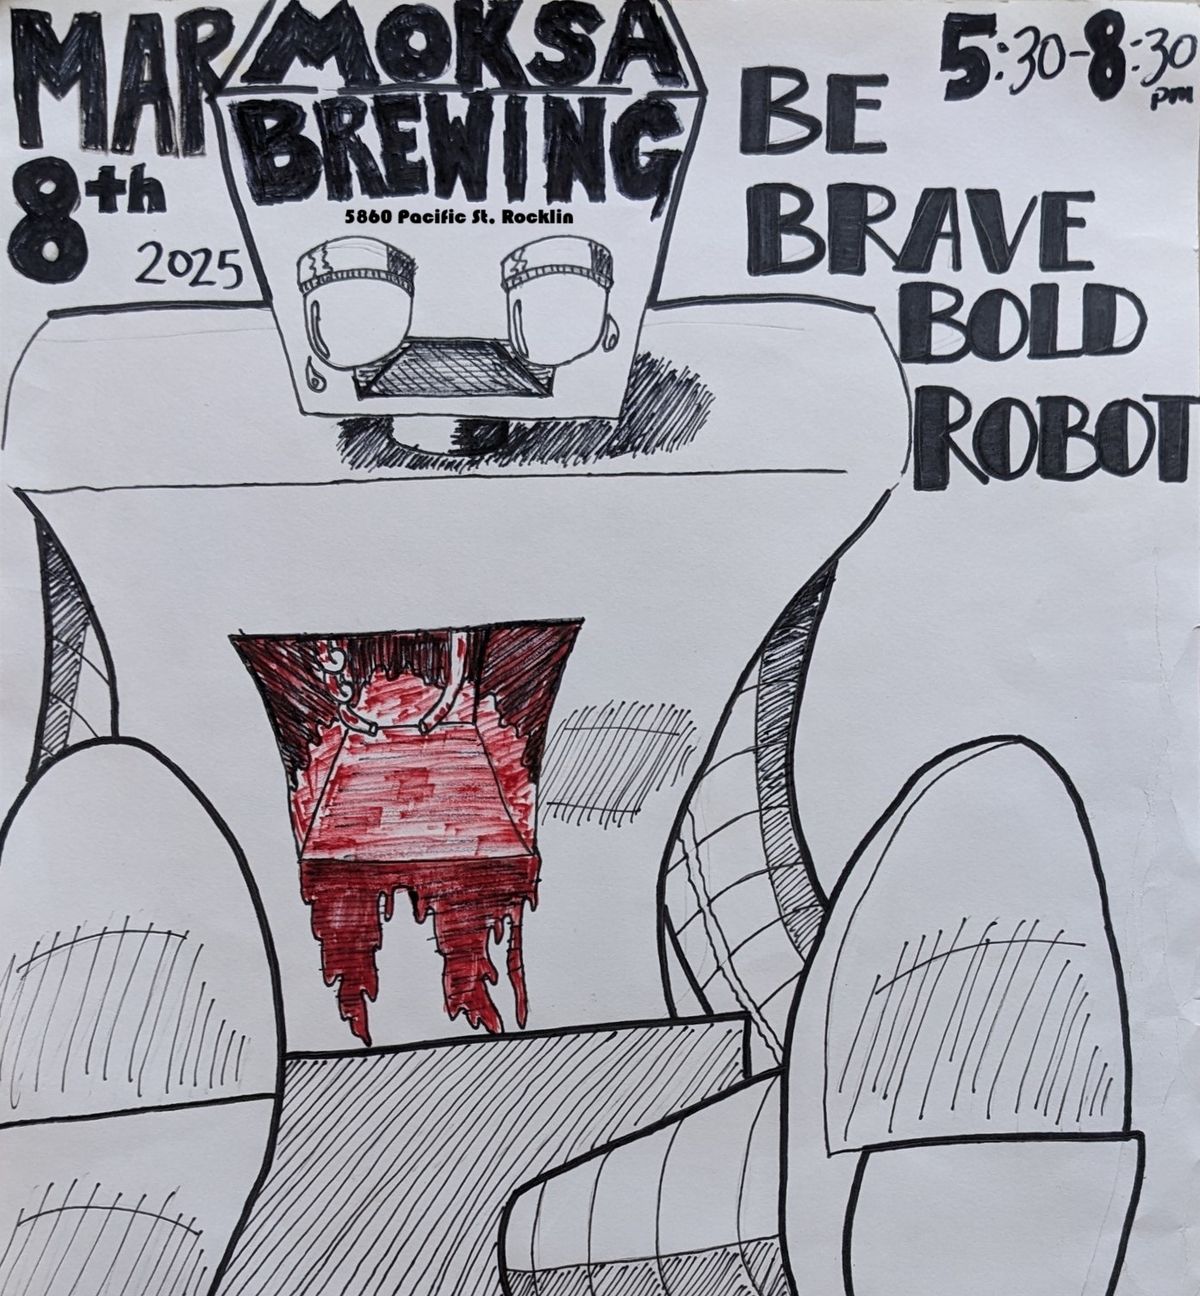 MAR
8th
2025
MOKSA
BREWING
5860 Pacific St. Rocklin
5:30-8:30
pm
BE
BRAVE
BOLD
ROBOT